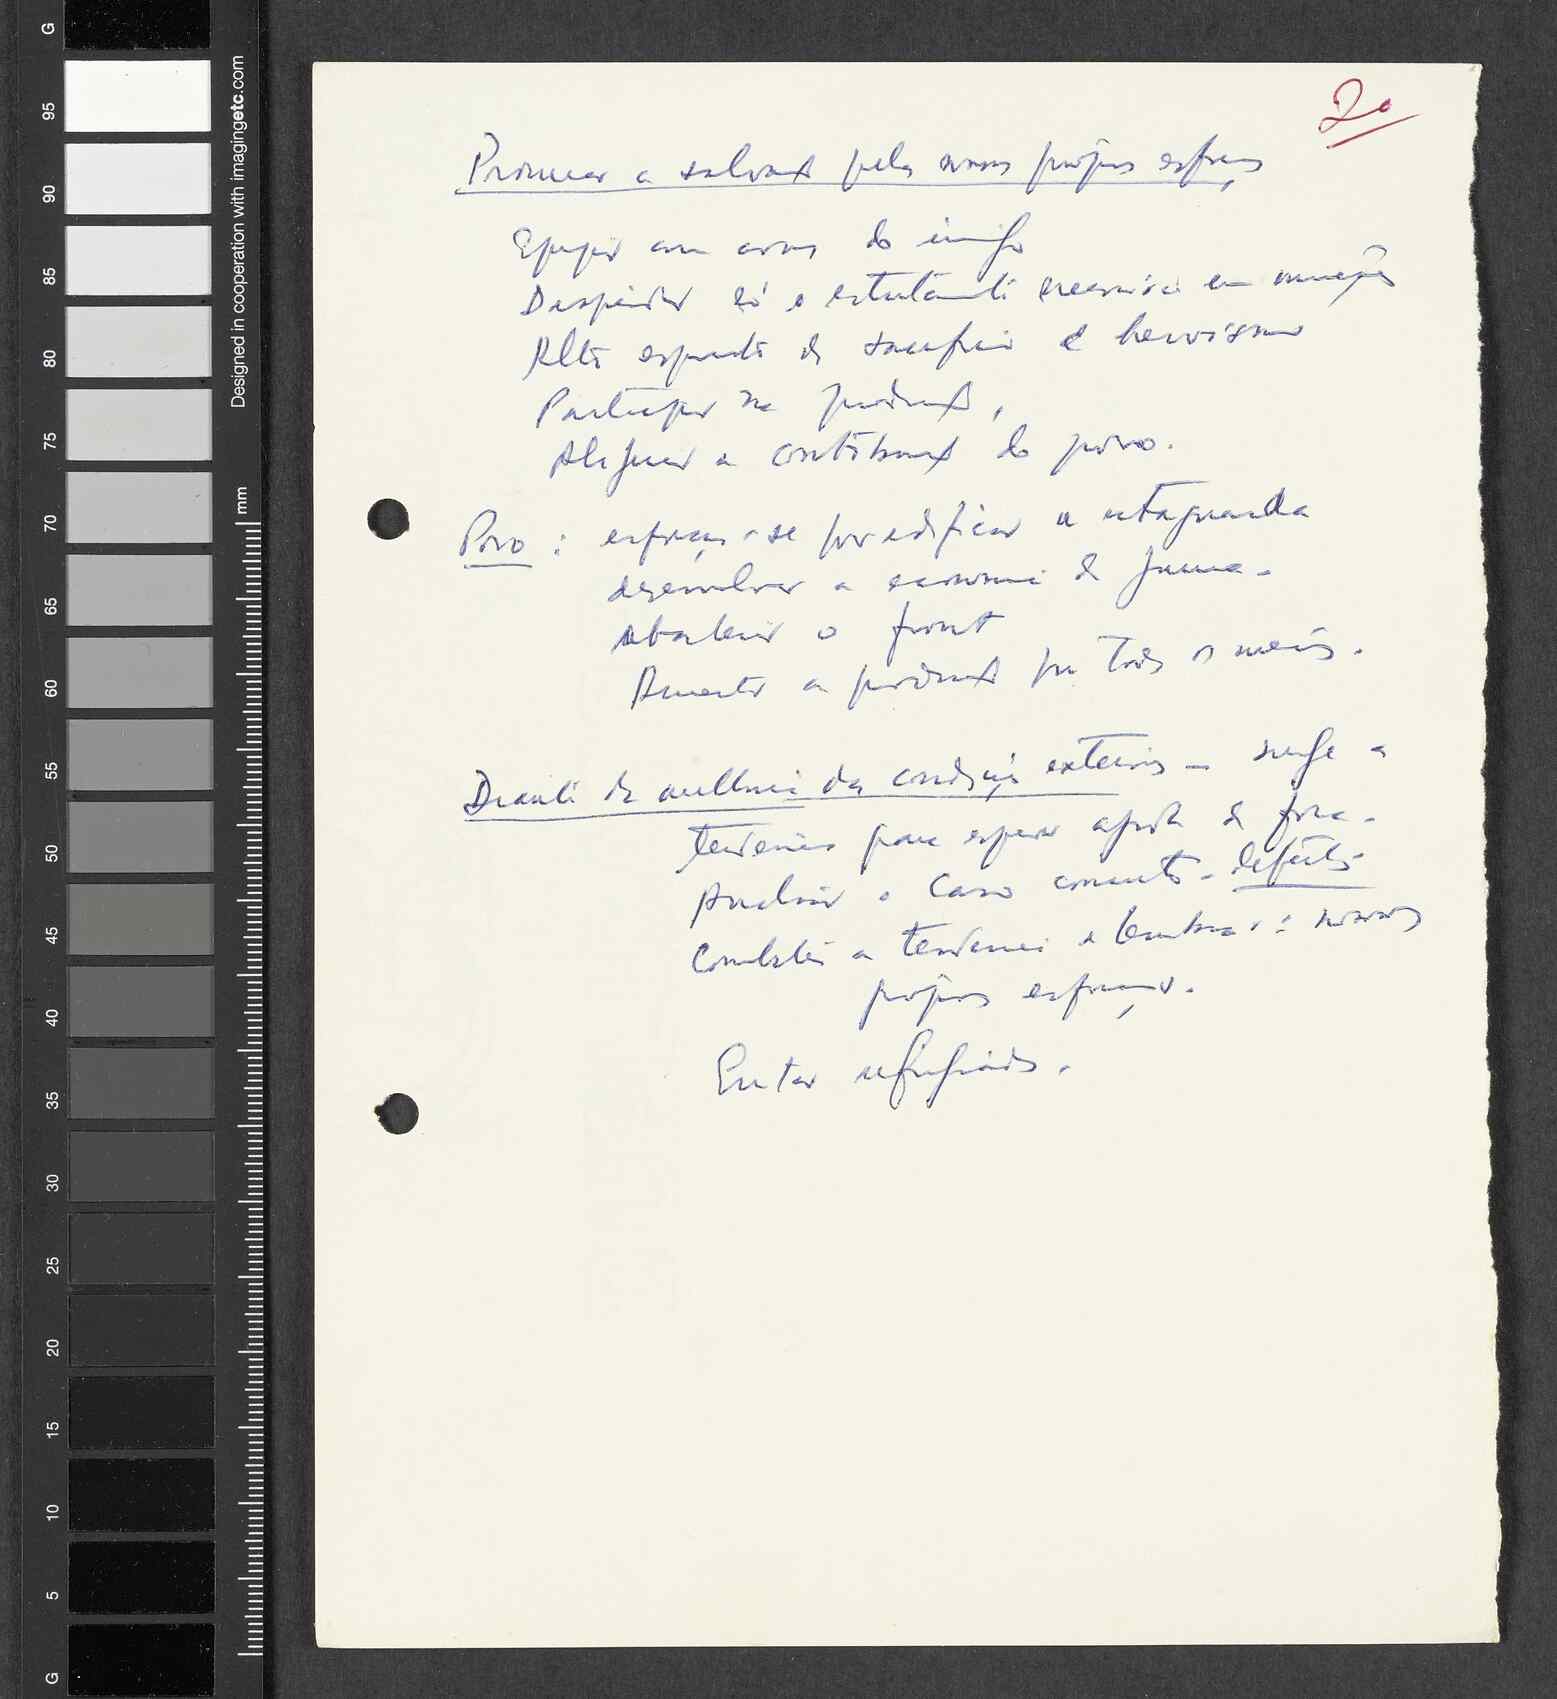 20
Procurar a salvação pelos nossos próprios esforços
Equipar com armas do inimigo
Despender só o estritamente necessário em munições
Alto espírito de sacrifício e heroísmo
Participar na produção,
Aligeirar a contribuição do povo.
Povo : esforçar-se por edificar a retaguarda
desenvolver a economia de guerra.
abastecer o front
Aumentar a produção por todos os meios.
Diante da melhoria das condições exteriores — surge a
tendência para esperar ajuda de fora.
Analisar o caso concreto.
Combater a tendência e lembrar : nossos
próprios esforços.
Evitar refugiados.
G
95
90
85
80
75
70
65
60
55
50
45
40
35
30
25
20
15
10
5
G
Designed in cooperation with imagingetc.com
mm